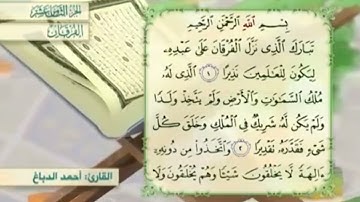 الجزء الثامن عشر
الفرقان
بِسْمِ اللَّهِ الرَّحْمَٰنِ الرَّحِيمِ
تَبَارَكَ الَّذِي نَزَّلَ الْفُرْقَانَ عَلَىٰ عَبْدِهِ
لِيَكُونَ لِلْعَالَمِينَ نَذِيرًا ١ الَّذِي لَهُ
مُلْكُ السَّمَاوَاتِ وَالْأَرْضِ وَلَمْ يَتَّخِذْ وَلَدًا
وَلَمْ يَكُن لَّهُ شَرِيكٌ فِي الْمُلْكِ وَخَلَقَ كُلَّ
شَيْءٍ فَقَدَّرَهُ تَقْدِيرًا ٢ وَاتَّخَذُوا مِن دُونِهِ
آلِهَةً لَّا يَخْلُقُونَ شَيْئًا وَهُمْ يُخْلَقُونَ وَلَا
القارئ: أحمد الدباغ